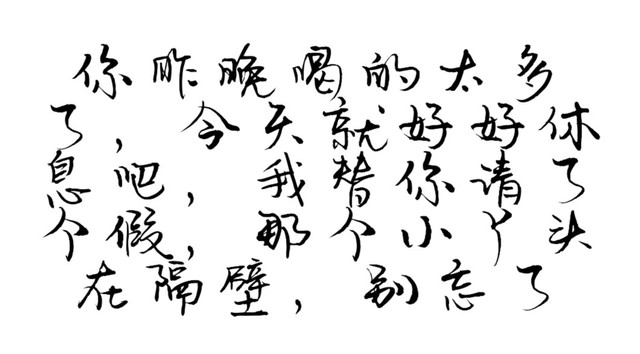 你昨晚喝的太多
了，今天就好好休
息吧，我替你请了
个假，那个小丫头
在隔壁，别忘了